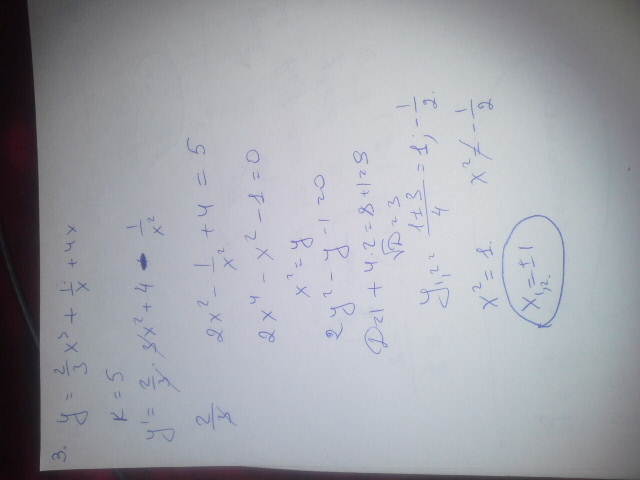 3. y = 2/3 x³ + 1/x + 4x
K = 5
y' = 2/3 · 3x² + 4 - 1/x²
2/3
2x² - 1/x² + 4 = 5
2x⁴ - x² - 1 = 0
x² = y
2y² - y - 1 = 0
D = 1 + 4·2 = 8 + 1 = 9
√D = 3
y₁,₂ = (1 ± 3)/4 = 1; -1/2.
x² = 1. x² ≠ -1/2
x₁,₂ = ±1